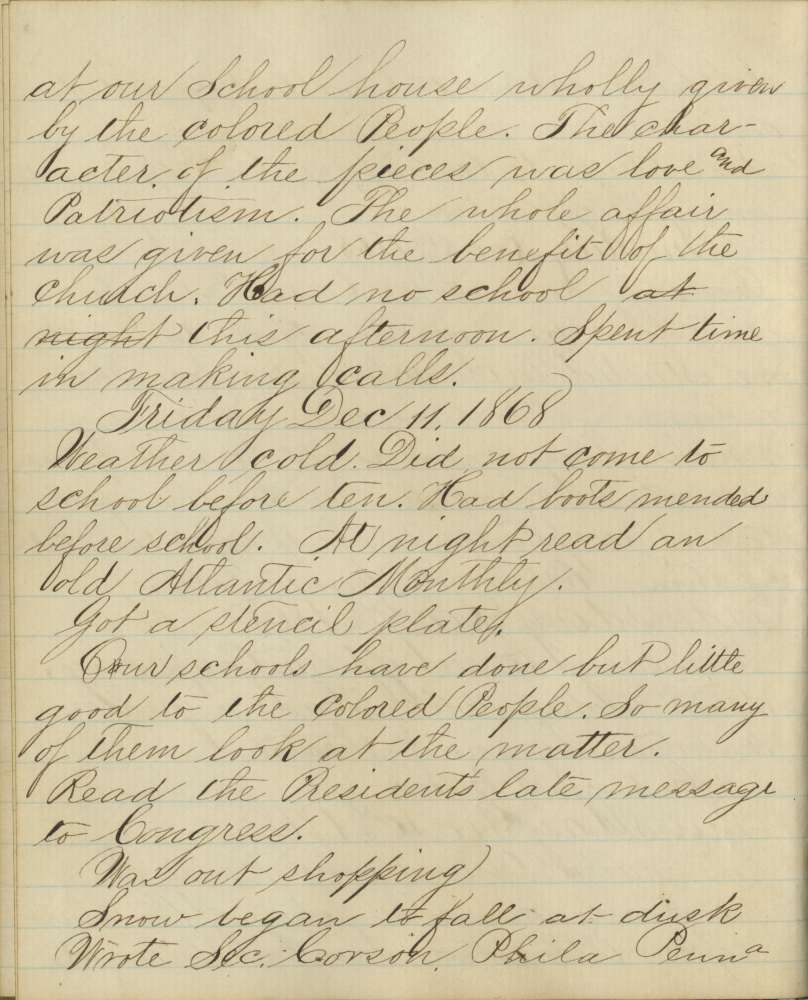 at our School house wholly given
by the colored People. The char-
acter of the pieces was love and
Patriotism. The whole affair
was given for the benefit of the
Church. Had no school at
night this afternoon. Spent time
in making calls.
Friday Dec 11. 1868
Weather cold. Did not come to
school before ten. Had boots mended
before school. At night read an
old Atlantic Monthly.
Got a stencil plate.
Our schools have done but little
good to the Colored People. So many
of them look at the matter.
Read the Presidents late message
to Congress.
Was out shopping
Snow began to fall at dusk
Wrote Sec. Corson. Phila Penna